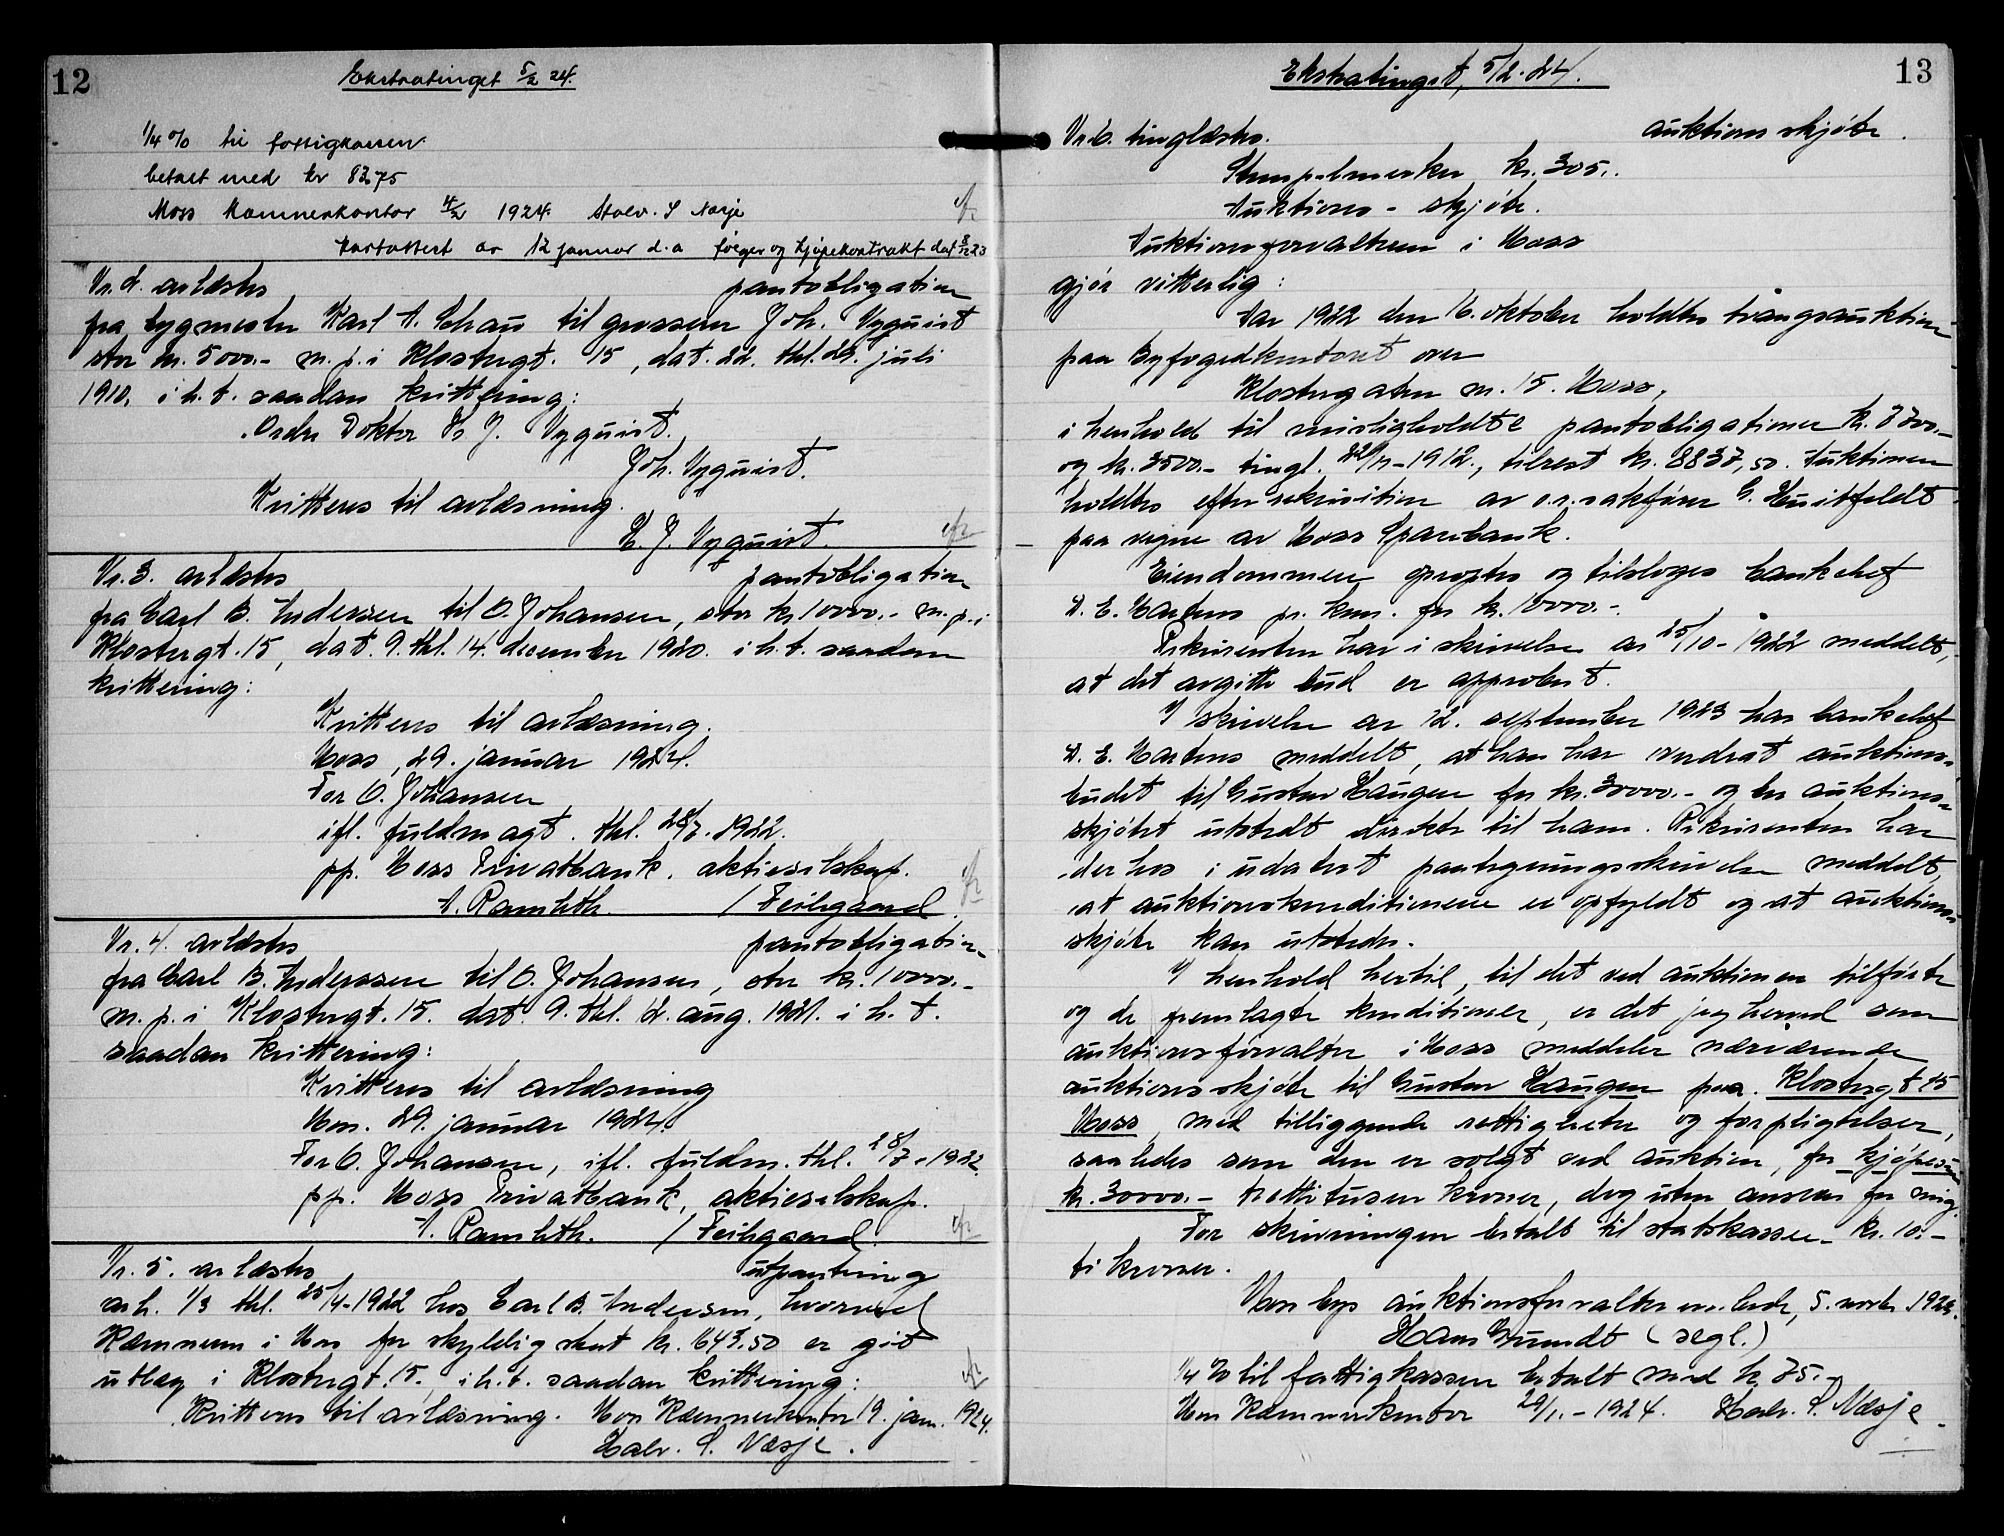 12
Ekstratinget 5/2 24.
1/4 % til fattigkassen
betalt med kr 83,75
Moss Kæmnerkontor 4/2 1924. Halv. S Næsje
kartattest av 12 januar d.a følger og kjøpekontrakt dat 8/12 23
Nr. 2. avlæstes pantobligation
fra bygmester Karl A. Schau til grosserer Joh. Nyquist
stor kr. 5000.- m. p. i Klostergt. 15, dat. 22. thl. 29. juli
1910, i h. t. saadan kvittering:
Ordre Doktor H. J. Nyquist.
Joh. Nyquist.
Kvitteres til avlæsning.
H. J. Nyquist.
Nr. 3. avlæstes pantobligation
fra Carl B. Anderssen til O. Johansen, stor kr. 10000.- m. p. i
Klostergt. 15, dat. 9. thl. 14. december 1920. i h. t. saadan
kvittering:
Kvitteres til avlæsning.
Moss, 29. januar 1924.
For O. Johansen
ifl. fuldmagt. thl. 28/7-1922.
pp. Moss Privatbank, aktieselskap.
A. Ramleth. / Feilegaard.
Nr. 4. avlæstes pantobligation
fra Carl B. Anderssen til O. Johansen, stor kr. 10000.-
m. p. i Klostergt. 15. dat. 9. thl. 12. aug. 1921. i h. t.
saadan kvittering:
Kvitteres til avlæsning
Moss. 29. januar 1924.
For O. Johansen, ifl. fuldm. thl. 28/7-1922.
pp. Moss Privatbank, aktieselskap.
A. Ramleth. / Feilegaard.
Nr. 5. avlæstes utpantning
avh. 1/3 thl. 25/4-1922 hos Carl B. Andersen, hvorved
Kæmneren i Moss for skyldig skat kr. 1643,50 er git
utlæg i Klostergt. 15, i h. t. saadan kvittering:
Kvitteres til avlæsning. Moss Kæmnerkontor 19. jan. 1924.
Halv. S. Næsje.
13
Ekstratinget, 5/2-24.
Nr. 6. tinglæstes. auktionsskjøte.
Stempelmerker kr. 305,-
Auktions-skjøte.
Auktionsforvalteren i Moss
gjør vitterlig:
Aar 1922 den 16. oktober holdtes tvangsauktion
paa Byfogedkontoret over
Klostergaten nr. 15. Moss,
i henhold til misligholdte pantobligationer kr. 7700.-
og kr. 3500.- tingl. 22/11-1912., tilrest kr. 8837,50. Auktionen
holdtes efter rekvisition av o.r.sakfører C. Huitfeldt
paa vegne av Moss Sparebank.
Eiendommen opropes og tilsloges bankchef
A. E. Martens pr. kom. for kr. 10000.-
Rekvirenten har i skrivelse av 25/10-1922 meddelt,
at det avgitte bud er approbert.
I skrivelse av 12. september 1923 har bankchef
A. E. Martens meddelt, at han har overdrat auktions-
budet til Gustav Haugen for kr. 30000.- og ber auktions-
skjøtet utstedt direkte til ham. Rekvirenten har
derhos i udatert paategningsskrivelse meddelt,
at auktionskonditionene er opfyldt og at auktions
skjøte kan utstedes.
I henhold hertil, til det ved auktionen tilførte
og de fremlagte konditioner, er det jeg herved som
auktionsforvalter i Moss meddeler nærværende
auktionsskjøte til Gustav Haugen paa Klostergt 15
Moss, med tilliggende rettigheter og forpligtelser,
saaledes som den er solgt ved auktion, for kjøpesum
kr. 30000.- trettitusen kroner, dog uten ansvar for mig.
For skrivningen betalt til statskassen kr. 10.-
ti kroner.
Moss bys auktionsforvalterembede, 5. novbr. 1923.
Hans Gundt (segl.)
1/4 % til fattigkassen betalt med kr. 75.-
Moss Kæmnerkontor 29/1.-1924. Halv. S. Næsje.